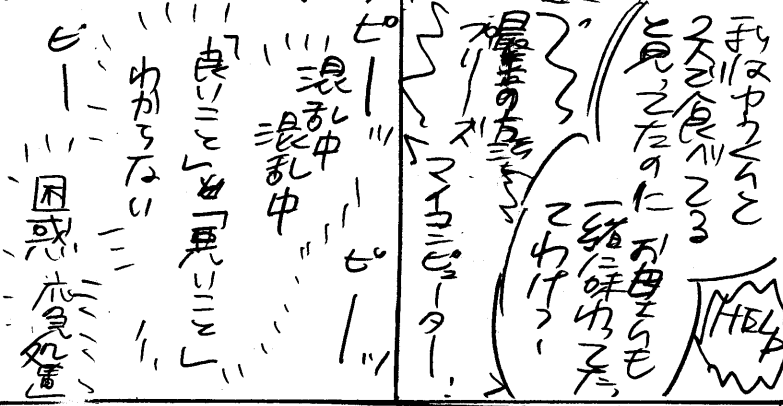 私はヤクルと
2人で食べてる
と見ってたのに
お母さんも
一緒に味わってた
てわけっ!
HELP
で〜
最善の方法を
プリーズ
マイコンピューター!
ピーッ
ピーッ
混乱中
混乱中
「良いこと」も「悪いこと」
わからない
ピー
困惑
応急処置